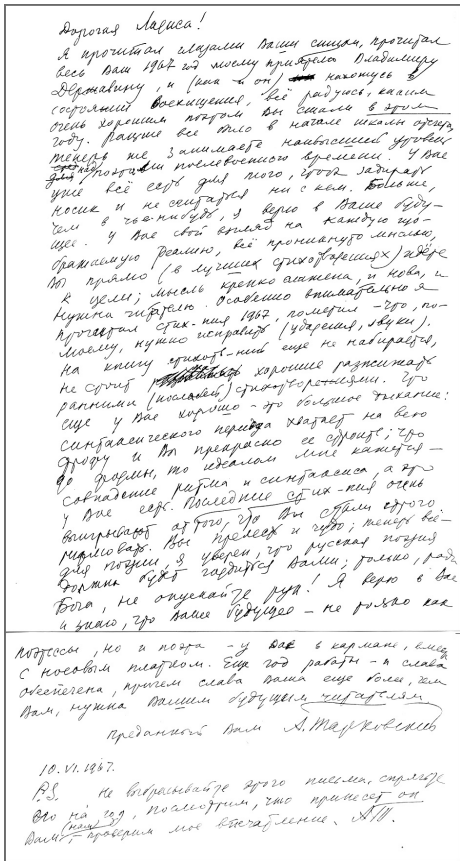 Дорогая Лариса!
Я прочитал глазами Ваши список, прочитал
весь Ваш 1967 год моему приятелю Владимиру
Державину, и (как и он) нахожусь в
состоянии восхищения, всё радуюсь, каким
очень хорошим поэтом Вы стали в этом
году. Раньше все было в начале шкалы отсчета,
теперь же занимаете наивысший уровень
над поэзией послевоенного времени. У Вас
уже всё есть для того, чтоб задирать
носик и не считаться ни с кем. Больше,
чем в чье-нибудь, я верю в Ваше буду-
щее. У Вас свой взгляд на каждую изо-
бражаемую реалию, всё пронизано мыслью,
Вы прямо (в лучших стихотворениях) идёте
к цели; мысль крепко сажена, и нова, и
нужна читателю. Особенно внимательно я
прочитал стих-ния 1967, пометил – что, по-
моему, нужно исправить (ударения, звуки).
На книгу стихотв-ний еще не набирается,
не стоит хорошие разжижать
ранними (послабей) стихотворениями. Что
еще у Вас хорошо – это большое дыхание:
синтаксического периода хватает на всю
строфу и Вы прекрасно ее строите; что
до формы, то идеалом мне кажется –
совпадение ритма и синтаксиса, а это
у Вас есть. Последние стих-ния очень
выигрывают от того, что Вы стали строго
рифмовать. Вы прелесть и чудо; теперь всё –
для поэзии, я уверен, что русская поэзия
должна будет гордиться Вами; только, ради
Бога, не опускайте рук! Я верю в Вас
и знаю, что Ваше будущее – не только как
поэтессы, но и поэта – у Вас в кармане, вместе
с носовым платком. Еще год работы – и слава
обеспечена, причем слава Ваша еще более, чем
Вам, нужна Вашим будущим читателям
преданный Вам А. Тарковский
10.VI.1967.
P.S. Не выбрасывайте этого письма, спрячьте
его на год, посмотрим, что принесет он
Вам, (нам) – проверим мое впечатление. А.Т.